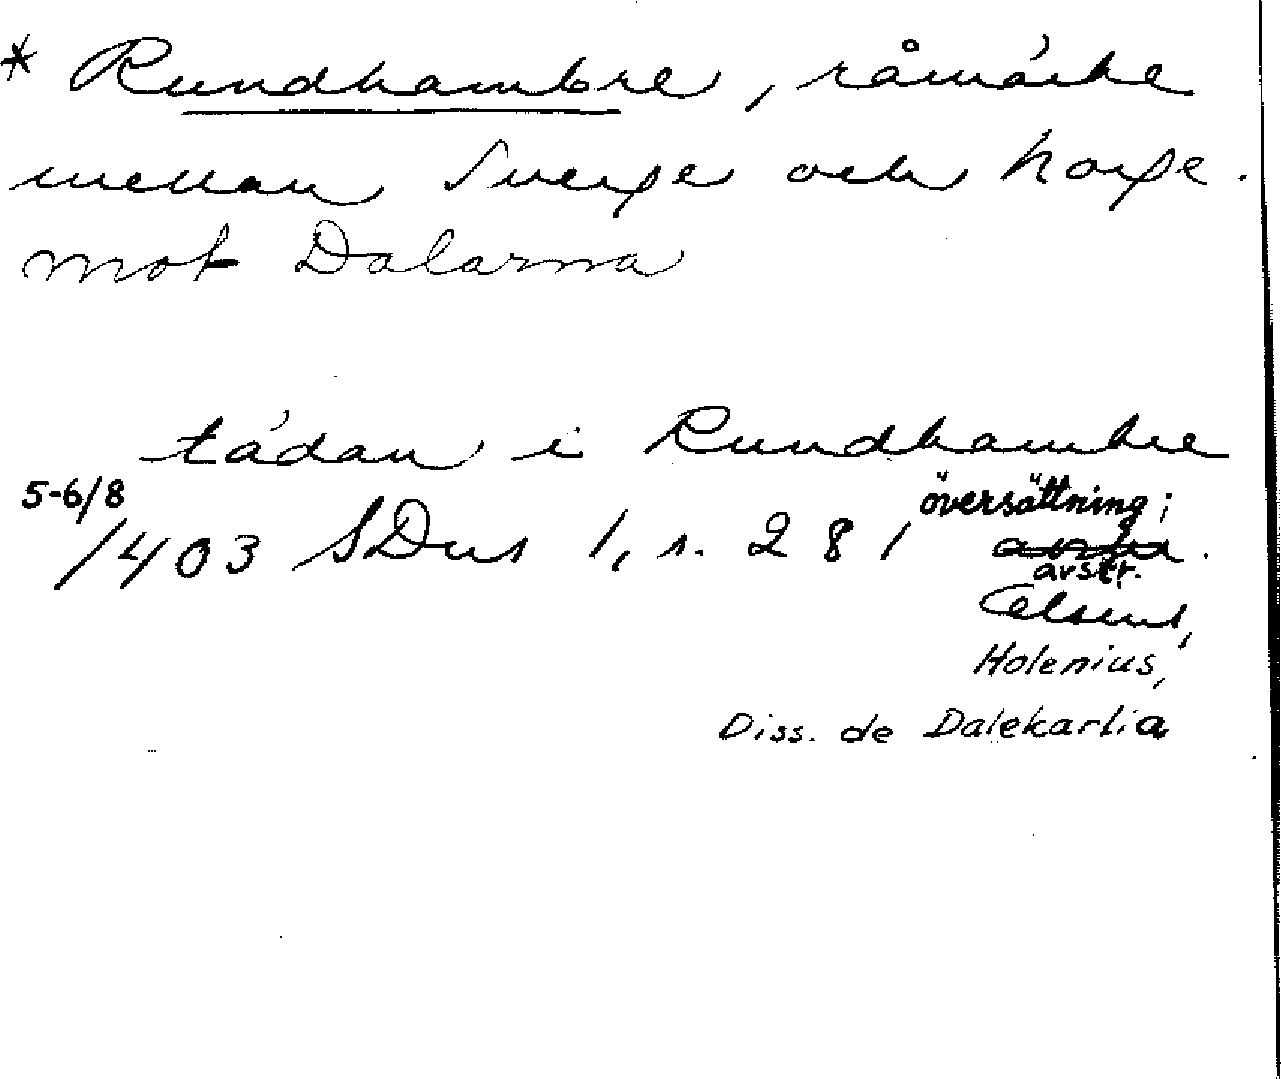 * Rundhambre, råmärke
mellan Sverge och Norge.
mot Dalarna
tádan i Rundhambre
5-6/8
/1403 SDns 1, s. 281 översättning;
avskr.
Celsius,
Holenius,
Diss. de Dalekarlia